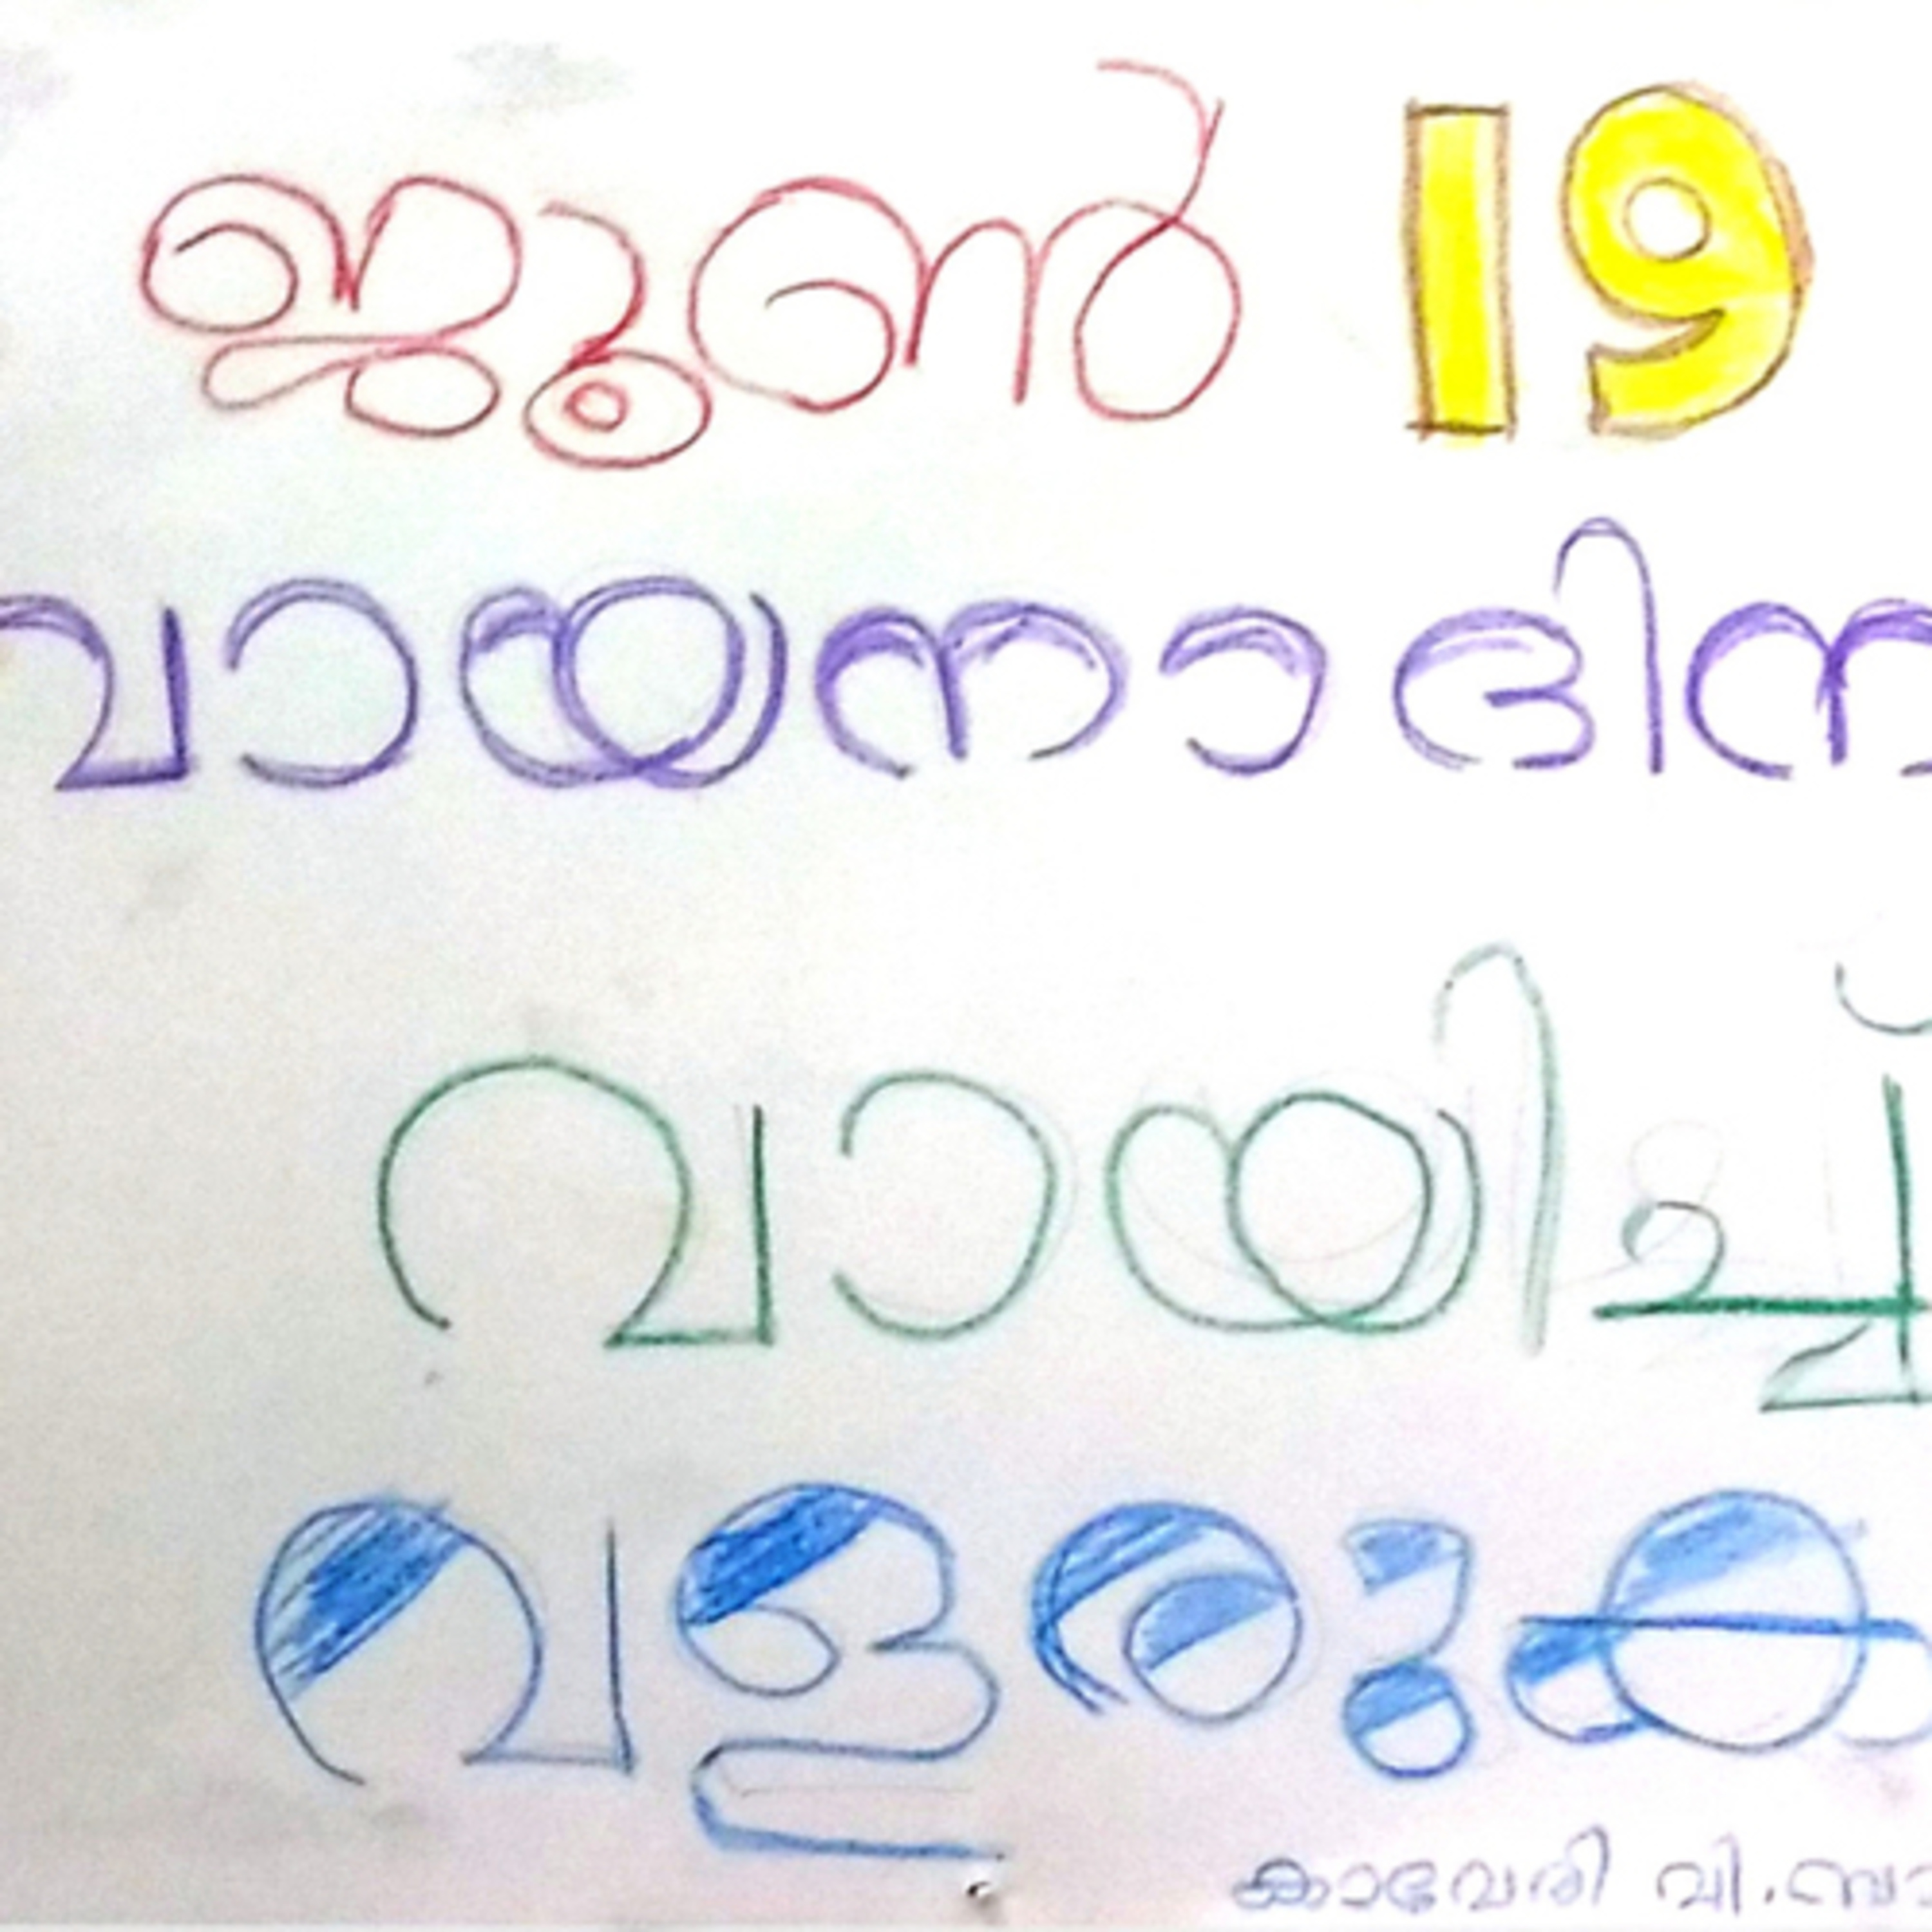 ജൂൺ 19
വായനാ ദിന
വായിച്ച്
വളരുക
കാവേരി വി.